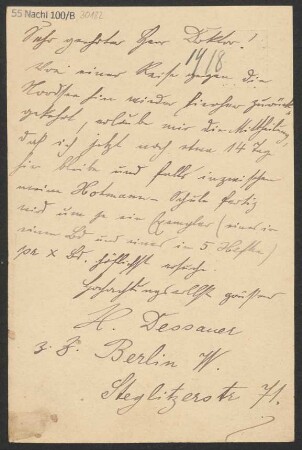 55 Nachl 100/B 30122
Sehr geehrter Herr Doktor!
14/8
Von einer Reise gegen die
Nordsee hin wieder hierher zurück-
gekehrt, erlaube mir die Mittheilung,
daß ich jetzt noch etwa 14 Tag
hier bleibe und falls inzwischen
meine Hohmann-Schule fertig
wird um je ein Exemplar (einer in
einem Bd und einer in 5 Heften)
pr x Bd. höflichst ersuche.
Hochachtungsvollst grüssend
H. Dessauer
z. Z. Berlin W.
Steglitzerstr 71.